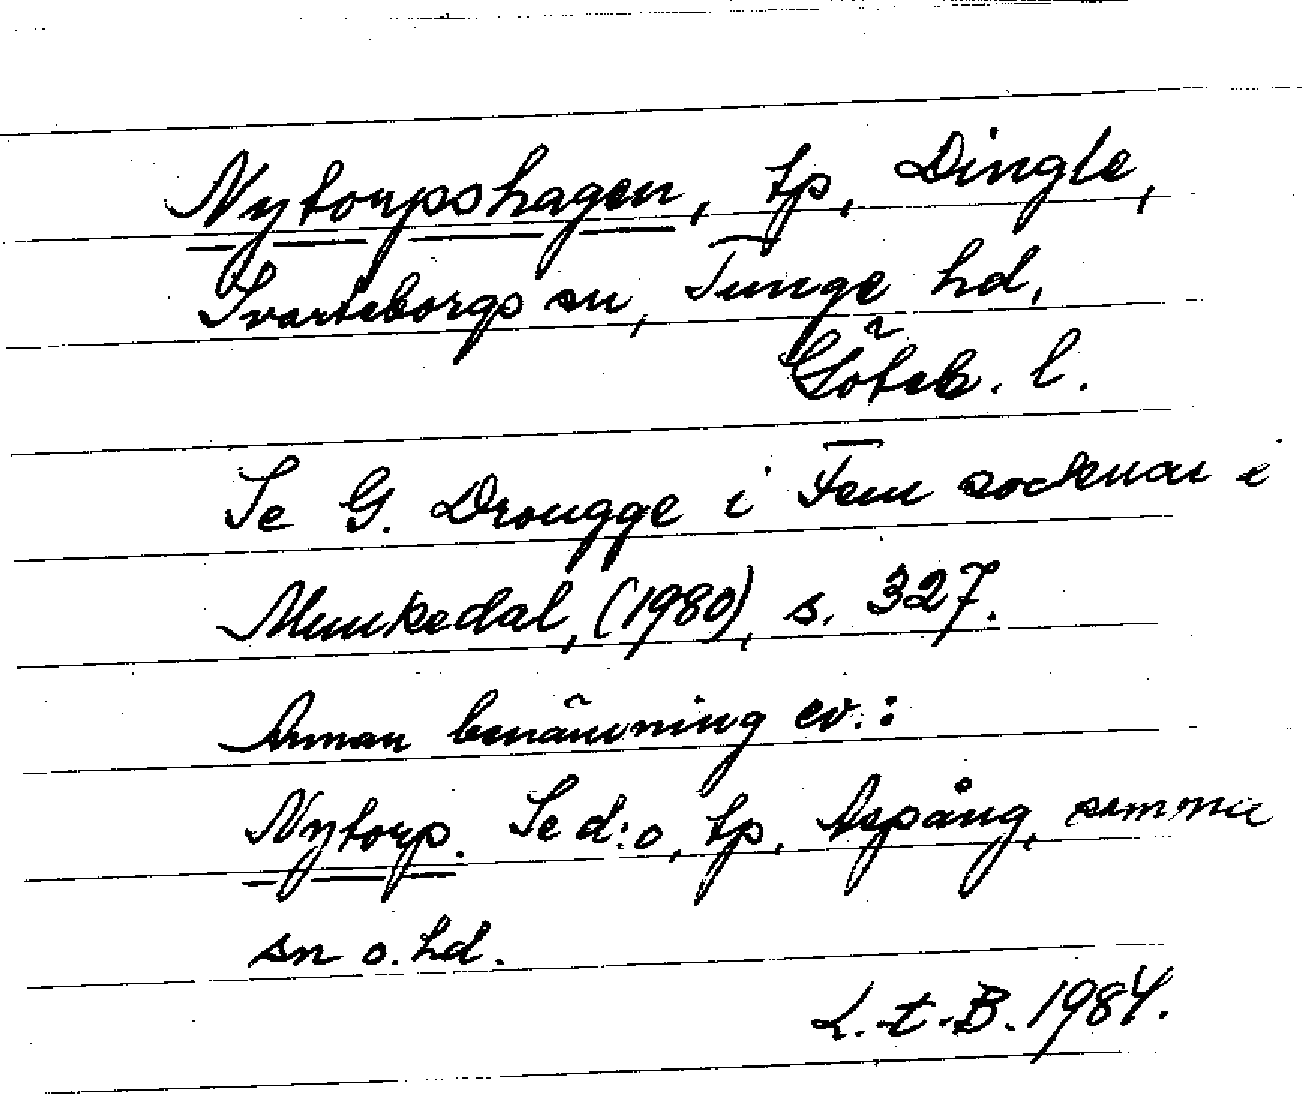 Nytorpshagen, tp, Dingle,
Svarteborgs sn, Tunge hd,
Göteb. l.
Se G. Drougge i Fem socknar i
Munkedal, (1980), s. 327.
Annan benämning ev.:
Nytorp. Se d:o, tp, Aspäng, samma
sn o. hd.
L. t. B. 1984.